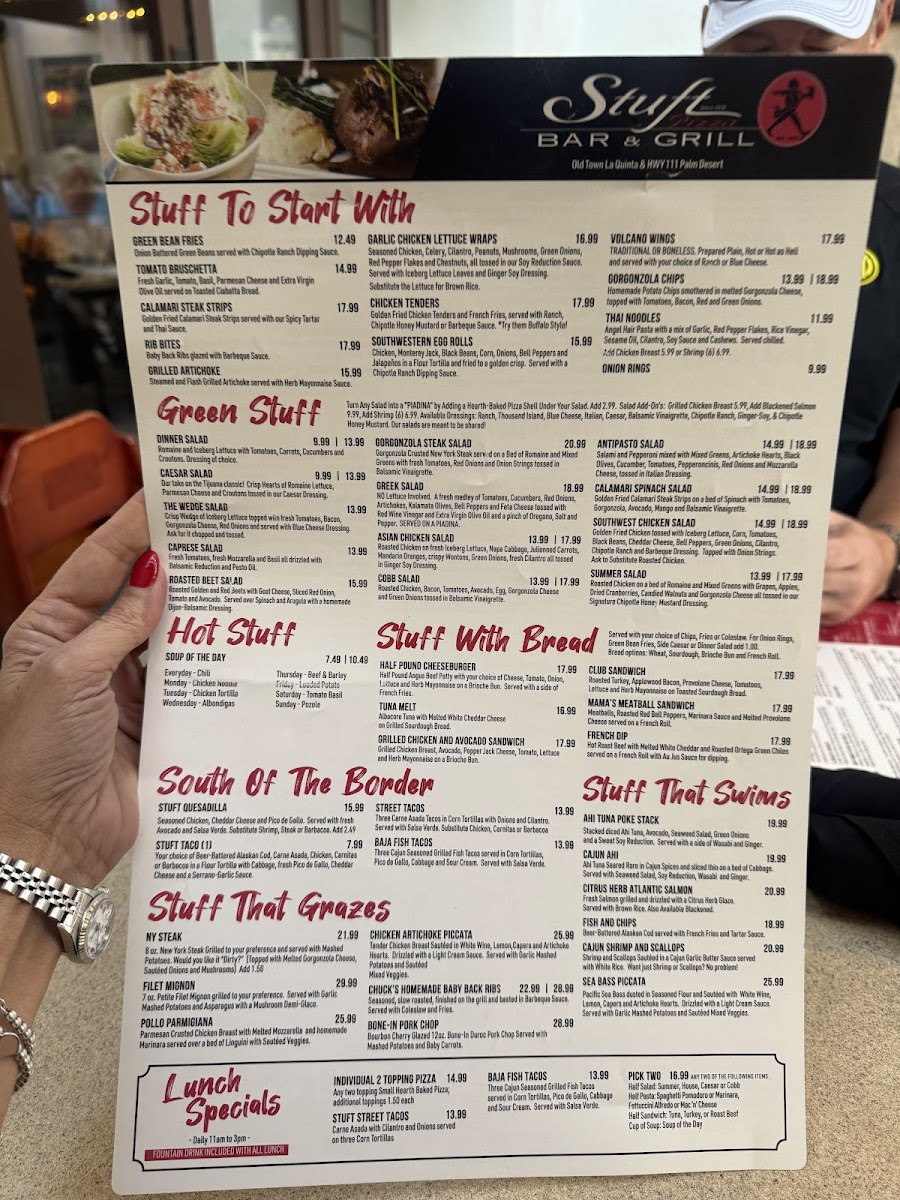 Stuft
Pizza
BAR & GRILL
Old Town La Quinta & HWY 111 Palm Desert
Stuff To Start With
GREEN BEAN FRIES 12.49
Onion Battered Green Beans served with Chipotle Ranch Dipping Sauce.
TOMATO BRUSCHETTA 14.99
Fresh Garlic, Tomato, Basil, Parmesan Cheese and Extra Virgin
Olive Oil served on Toasted Ciabatta Bread.
CALAMARI STEAK STRIPS 17.99
Golden Fried Calamari Steak Strips served with our Spicy Tartar
and Thai Sauce.
RIB BITES 17.99
Baby Back Ribs glazed with Barbeque Sauce.
GRILLED ARTICHOKE 15.99
Steamed and Flash Grilled Artichoke served with Herb Mayonnaise Sauce.
GARLIC CHICKEN LETTUCE WRAPS 16.99
Seasoned Chicken, Celery, Cilantro, Peanuts, Mushrooms, Green Onions,
Red Pepper Flakes and Chestnuts, all tossed in our Soy Reduction Sauce.
Served with Iceberg Lettuce Leaves and Ginger Soy Dressing.
Substitute the Lettuce for Brown Rice.
CHICKEN TENDERS 17.99
Golden Fried Chicken Tenders and French Fries, served with Ranch,
Chipotle Honey Mustard or Barbeque Sauce. *Try them Buffalo Style!
SOUTHWESTERN EGG ROLLS 15.99
Chicken, Monterey Jack, Black Beans, Corn, Onions, Bell Peppers and
Jalapeños in a Flour Tortilla and fried to a golden crisp. Served with a
Chipotle Ranch Dipping Sauce.
VOLCANO WINGS 17.99
TRADITIONAL OR BONELESS. Prepared Plain, Hot or Hot as Hell
and served with your choice of Ranch or Blue Cheese.
GORGONZOLA CHIPS 13.99 | 18.99
Homemade Potato Chips smothered in melted Gorgonzola Cheese,
topped with Tomatoes, Bacon, Red and Green Onions.
THAI NOODLES 11.99
Angel Hair Pasta with a mix of Garlic, Red Pepper Flakes, Rice Vinegar,
Sesame Oil, Cilantro, Soy Sauce and Cashews. Served chilled.
Add Chicken Breast 5.99 or Shrimp (6) 6.99.
ONION RINGS 9.99
Green Stuff
Turn Any Salad into a "PIADINA" by Adding a Hearth-Baked Pizza Shell Under Your Salad. Add 2.99. Salad Add-On's: Grilled Chicken Breast 5.99, Add Blackened Salmon
9.99, Add Shrimp (6) 6.99. Available Dressings: Ranch, Thousand Island, Blue Cheese, Italian, Caesar, Balsamic Vinaigrette, Chipotle Ranch, Ginger-Soy, & Chipotle
Honey Mustard. Our salads are meant to be shared!
DINNER SALAD 9.99 | 13.99
Romaine and Iceberg Lettuce with Tomatoes, Carrots, Cucumbers and
Croutons. Dressing of choice.
CAESAR SALAD 9.99 | 13.99
Our take on the Tijuana classic! Crisp Hearts of Romaine Lettuce,
Parmesan Cheese and Croutons tossed in our Caesar Dressing.
THE WEDGE SALAD 13.99
Crisp Wedge of Iceberg Lettuce topped with fresh Tomatoes, Bacon,
Gorgonzola Cheese, Red Onions and served with Blue Cheese Dressing.
Ask for it chopped and tossed.
CAPRESE SALAD 13.99
Fresh Tomatoes, fresh Mozzarella and Basil all drizzled with
Balsamic Reduction and Pesto Oil.
ROASTED BEET SALAD 15.99
Roasted Golden and Red Beets with Goat Cheese, Sliced Red Onion,
Tomato and Avocado. Served over Spinach and Arugula with a homemade
Dijon-Balsamic Dressing.
GORGONZOLA STEAK SALAD 20.99
Gorgonzola Crusted New York Steak served on a Bed of Romaine and Mixed
Greens with fresh Tomatoes, Red Onions and Onion Strings tossed in
Balsamic Vinaigrette.
GREEK SALAD 18.99
NO Lettuce Involved. A fresh medley of Tomatoes, Cucumbers, Red Onions,
Artichokes, Kalamata Olives, Bell Peppers and Feta Cheese tossed with
Red Wine Vinegar and Extra Virgin Olive Oil and a pinch of Oregano, Salt and
Pepper. SERVED ON A PIADINA.
ASIAN CHICKEN SALAD 13.99 | 17.99
Roasted Chicken on fresh Iceberg Lettuce, Napa Cabbage, Julienned Carrots,
Mandarin Oranges, crispy Wontons, Green Onions, fresh Cilantro all tossed
in Ginger Soy Dressing.
COBB SALAD 13.99 | 17.99
Roasted Chicken, Bacon, Tomatoes, Avocado, Egg, Gorgonzola Cheese
and Green Onions tossed in Balsamic Vinaigrette.
ANTIPASTO SALAD 14.99 | 18.99
Salami and Pepperoni mixed with Mixed Greens, Artichoke Hearts, Black
Olives, Cucumber, Tomatoes, Pepperoncinis, Red Onions and Mozzarella
Cheese, tossed in Italian Dressing.
CALAMARI SPINACH SALAD 14.99 | 18.99
Golden Fried Calamari Steak Strips on a bed of Spinach with Tomatoes,
Gorgonzola, Avocado, Mango and Balsamic Vinaigrette.
SOUTHWEST CHICKEN SALAD 14.99 | 18.99
Golden Fried Chicken tossed with Iceberg Lettuce, Corn, Tomatoes,
Black Beans, Cheddar Cheese, Bell Peppers, Green Onions, Cilantro,
Chipotle Ranch and Barbeque Dressing. Topped with Onion Strings.
Ask to Substitute Roasted Chicken.
SUMMER SALAD 13.99 | 17.99
Roasted Chicken on a bed of Romaine and Mixed Greens with Grapes, Apples,
Dried Cranberries, Candied Walnuts and Gorgonzola Cheese all tossed in our
Signature Chipotle Honey Mustard Dressing.
Hot Stuff
SOUP OF THE DAY 7.49 | 10.49
Everyday - Chili
Monday - Chicken Noodle
Tuesday - Chicken Tortilla
Wednesday - Albondigas
Thursday - Beef & Barley
Friday - Loaded Potato
Saturday - Tomato Basil
Sunday - Pozole
Stuff With Bread
Served with your choice of Chips, Fries or Coleslaw. For Onion Rings,
Green Bean Fries, Side Caesar or Dinner Salad add 1.00.
Bread options: Wheat, Sourdough, Brioche Bun and French Roll.
HALF POUND CHEESEBURGER 17.99
Half Pound Angus Beef Patty with your choice of Cheese, Tomato, Onion,
Lettuce and Herb Mayonnaise on a Brioche Bun. Served with a side of
French Fries.
TUNA MELT 16.99
Albacore Tuna with Melted White Cheddar Cheese
on Grilled Sourdough Bread.
GRILLED CHICKEN AND AVOCADO SANDWICH 17.99
Grilled Chicken Breast, Avocado, Pepper Jack Cheese, Tomato, Lettuce
and Herb Mayonnaise on a Brioche Bun.
CLUB SANDWICH 17.99
Roasted Turkey, Applewood Bacon, Provolone Cheese, Tomatoes,
Lettuce and Herb Mayonnaise on Toasted Sourdough Bread.
MAMA'S MEATBALL SANDWICH 17.99
Meatballs, Roasted Red Bell Peppers, Marinara Sauce and Melted Provolone
Cheese served on a French Roll.
FRENCH DIP 17.99
Hot Roast Beef with Melted White Cheddar and Roasted Ortega Green Chiles
served on a French Roll with Au Jus Sauce for dipping.
South Of The Border
STUFT QUESADILLA 15.99
Seasoned Chicken, Cheddar Cheese and Pico de Gallo. Served with fresh
Avocado and Salsa Verde. Substitute Shrimp, Steak or Barbacoa. Add 2.49
STUFT TACO (1) 7.99
Your choice of Beer-Battered Alaskan Cod, Carne Asada, Chicken, Carnitas
or Barbacoa in a Flour Tortilla with Cabbage, fresh Pico de Gallo, Cheddar
Cheese and a Serrano-Garlic Sauce.
STREET TACOS 13.99
Three Carne Asada Tacos in Corn Tortillas with Onions and Cilantro.
Served with Salsa Verde. Substitute Chicken, Carnitas or Barbacoa
BAJA FISH TACOS 13.99
Three Cajun Seasoned Grilled Fish Tacos served in Corn Tortillas,
Pico de Gallo, Cabbage and Sour Cream. Served with Salsa Verde.
Stuff That Swims
AHI TUNA POKE STACK 19.99
Stacked diced Ahi Tuna, Avocado, Seaweed Salad, Green Onions
and a Sweet Soy Reduction. Served with a side of Wasabi and Ginger.
CAJUN AHI 19.99
Ahi Tuna Seared Rare in Cajun Spices and sliced thin on a bed of Cabbage.
Served with Seaweed Salad, Soy Reduction, Wasabi and Ginger.
CITRUS HERB ATLANTIC SALMON 20.99
Fresh Salmon grilled and drizzled with a Citrus Herb Glaze.
Served with Brown Rice. Also Available Blackened.
FISH AND CHIPS 18.99
Beer-Battered Alaskan Cod served with French Fries and Tartar Sauce.
CAJUN SHRIMP AND SCALLOPS 20.99
Shrimp and Scallops Sautéed in a Cajun Garlic Butter Sauce served
with White Rice. Want just Shrimp or Scallops? No problem!
SEA BASS PICCATA 25.99
Pacific Sea Bass dusted in Seasoned Flour and Sautéed with White Wine,
Lemon, Capers and Artichoke Hearts. Drizzled with a Light Cream Sauce.
Served with Garlic Mashed Potatoes and Sautéed Mixed Veggies.
Stuff That Grazes
NY STEAK 21.99
8 oz. New York Steak Grilled to your preference and served with Mashed
Potatoes. Would you like it "Dirty?" (Topped with Melted Gorgonzola Cheese,
Sautéed Onions and Mushrooms) Add 1.50
FILET MIGNON 29.99
7 oz. Petite Filet Mignon grilled to your preference. Served with Garlic
Mashed Potatoes and Asparagus with a Mushroom Demi-Glace.
POLLO PARMIGIANA 25.99
Parmesan Crusted Chicken Breast with Melted Mozzarella and homemade
Marinara served over a bed of Linguini with Sautéed Veggies.
CHICKEN ARTICHOKE PICCATA 25.99
Tender Chicken Breast Sautéed in White Wine, Lemon,Capers and Artichoke
Hearts. Drizzled with a Light Cream Sauce. Served with Garlic Mashed
Potatoes and Sautéed
Mixed Veggies.
CHUCK'S HOMEMADE BABY BACK RIBS 22.99 | 28.99
Seasoned, slow roasted, finished on the grill and basted in Barbeque Sauce.
Served with Coleslaw and Fries.
BONE-IN PORK CHOP 28.99
Bourbon Cherry Glazed 12oz. Bone-In Duroc Pork Chop Served with
Mashed Potatoes and Baby Carrots.
Lunch
Specials
- Daily 11am to 3pm -
FOUNTAIN DRINK INCLUDED WITH ALL LUNCH
INDIVIDUAL 2 TOPPING PIZZA 14.99
Any two topping Small Hearth Baked Pizza;
additional toppings 1.50 each
STUFT STREET TACOS 13.99
Carne Asada with Cilantro and Onions served
on three Corn Tortillas
BAJA FISH TACOS 13.99
Three Cajun Seasoned Grilled Fish Tacos
served in Corn Tortillas, Pico de Gallo, Cabbage
and Sour Cream. Served with Salsa Verde.
PICK TWO 16.99 ANY TWO OF THE FOLLOWING ITEMS:
Half Salad: Summer, House, Caesar or Cobb
Half Pasta: Spaghetti Pomodoro or Marinara,
Fettuccini Alfredo or Mac 'n' Cheese
Half Sandwich: Tuna, Turkey, or Roast Beef
Cup of Soup: Soup of the Day